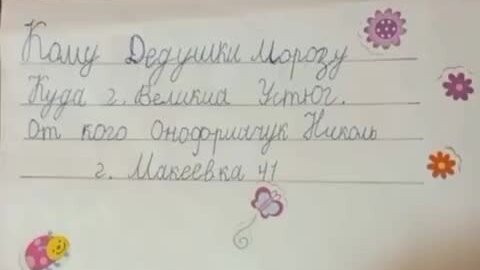 Кому Дедушки Морозу
Куда г. Великиа Устюг.
От кого Онофорийчук Николь
г. Макеевка 41